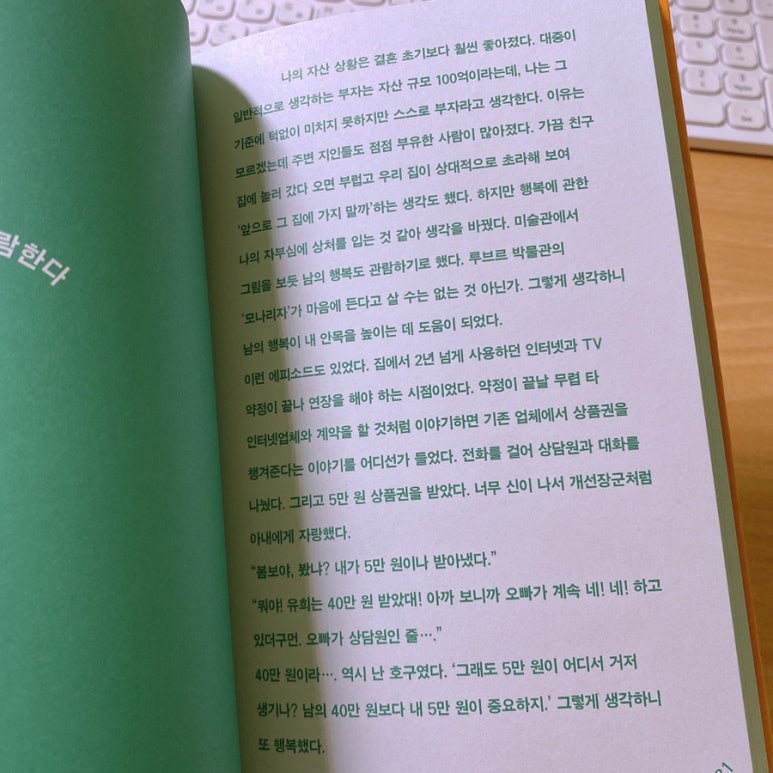 람한다
나의 자산 상황은 결혼 초기보다 훨씬 좋아졌다. 대중이
일반적으로 생각하는 부자는 자산 규모 100억이라는데, 나는 그
기준에 턱없이 미치지 못하지만 스스로 부자라고 생각한다. 이유는
모르겠는데 주변 지인들도 점점 부유한 사람이 많아졌다. 가끔 친구
집에 놀러 갔다 오면 부럽고 우리 집이 상대적으로 초라해 보여
‘앞으로 그 집에 가지 말까’하는 생각도 했다. 하지만 행복에 관한
나의 자부심에 상처를 입는 것 같아 생각을 바꿨다. 미술관에서
그림을 보듯 남의 행복도 관람하기로 했다. 루브르 박물관의
‘모나리자’가 마음에 든다고 살 수는 없는 것 아닌가. 그렇게 생각하니
남의 행복이 내 안목을 높이는 데 도움이 되었다.
이런 에피소드도 있었다. 집에서 2년 넘게 사용하던 인터넷과 TV
약정이 끝나 연장을 해야 하는 시점이었다. 약정이 끝날 무렵 타
인터넷업체와 계약을 할 것처럼 이야기하면 기존 업체에서 상품권을
챙겨준다는 이야기를 어디선가 들었다. 전화를 걸어 상담원과 대화를
나눴다. 그리고 5만 원 상품권을 받았다. 너무 신이 나서 개선장군처럼
아내에게 자랑했다.
“봄보야, 봤냐? 내가 5만 원이나 받아냈다.”
“뭐야! 유희는 40만 원 받았대! 아까 보니까 오빠가 계속 네! 네! 하고
있더구먼. 오빠가 상담원인 줄….”
40만 원이라…. 역시 난 호구였다. ‘그래도 5만 원이 어디서 거저
생기나? 남의 40만 원보다 내 5만 원이 중요하지.’ 그렇게 생각하니
또 행복했다.